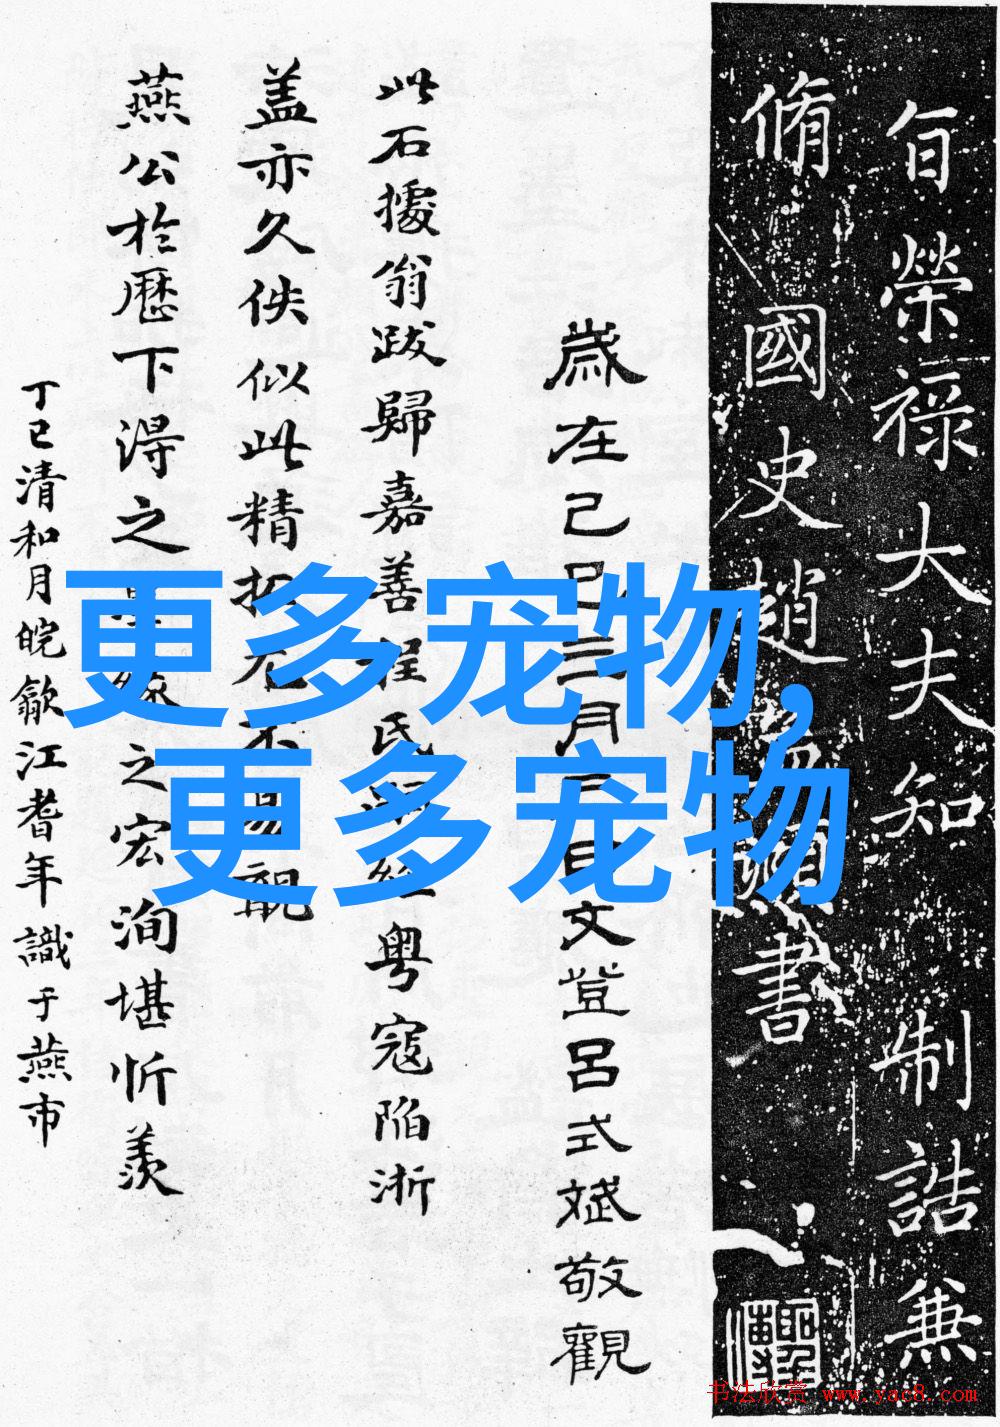 旨榮祿大夫知 制誥兼
脩國史趙書
歲在己巳三月日文登呂式斌敬觀
此石據翁跋歸嘉善程氏經粵寇陷浙
蓋亦久佚似此精拓尤不易覯
燕公於歷下得之之宏洵堪忻羨
丁巳清和月皖歙江耆年識于燕市
更多宠物,
更多宠物
书法欣赏 www.yac8.com